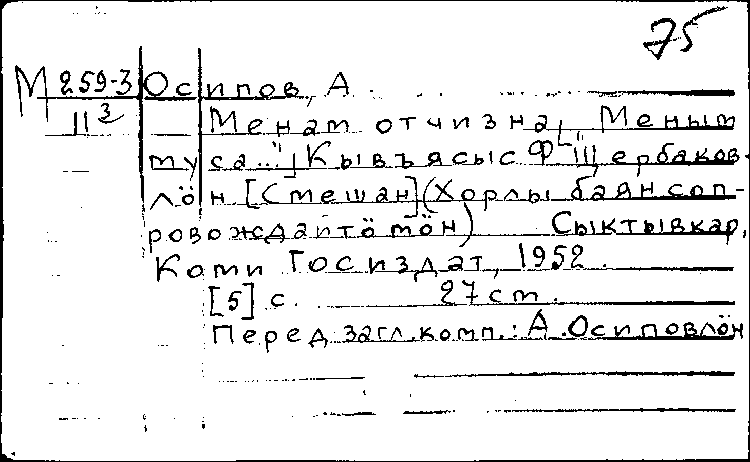 75
М 259-3 Осипов, А.
II 3 Менам отчизна [„Меным
туса..."] Кывъясыс Ф Щербаков-
лӧн [Смешан] (Хорлы баян соп-
ровождайтӧмӧн) Сыктывкар,
Коми Госиздат, 1952.
[5] с. 27 cm.
Перед загл. комп.: А. Осиповлӧн